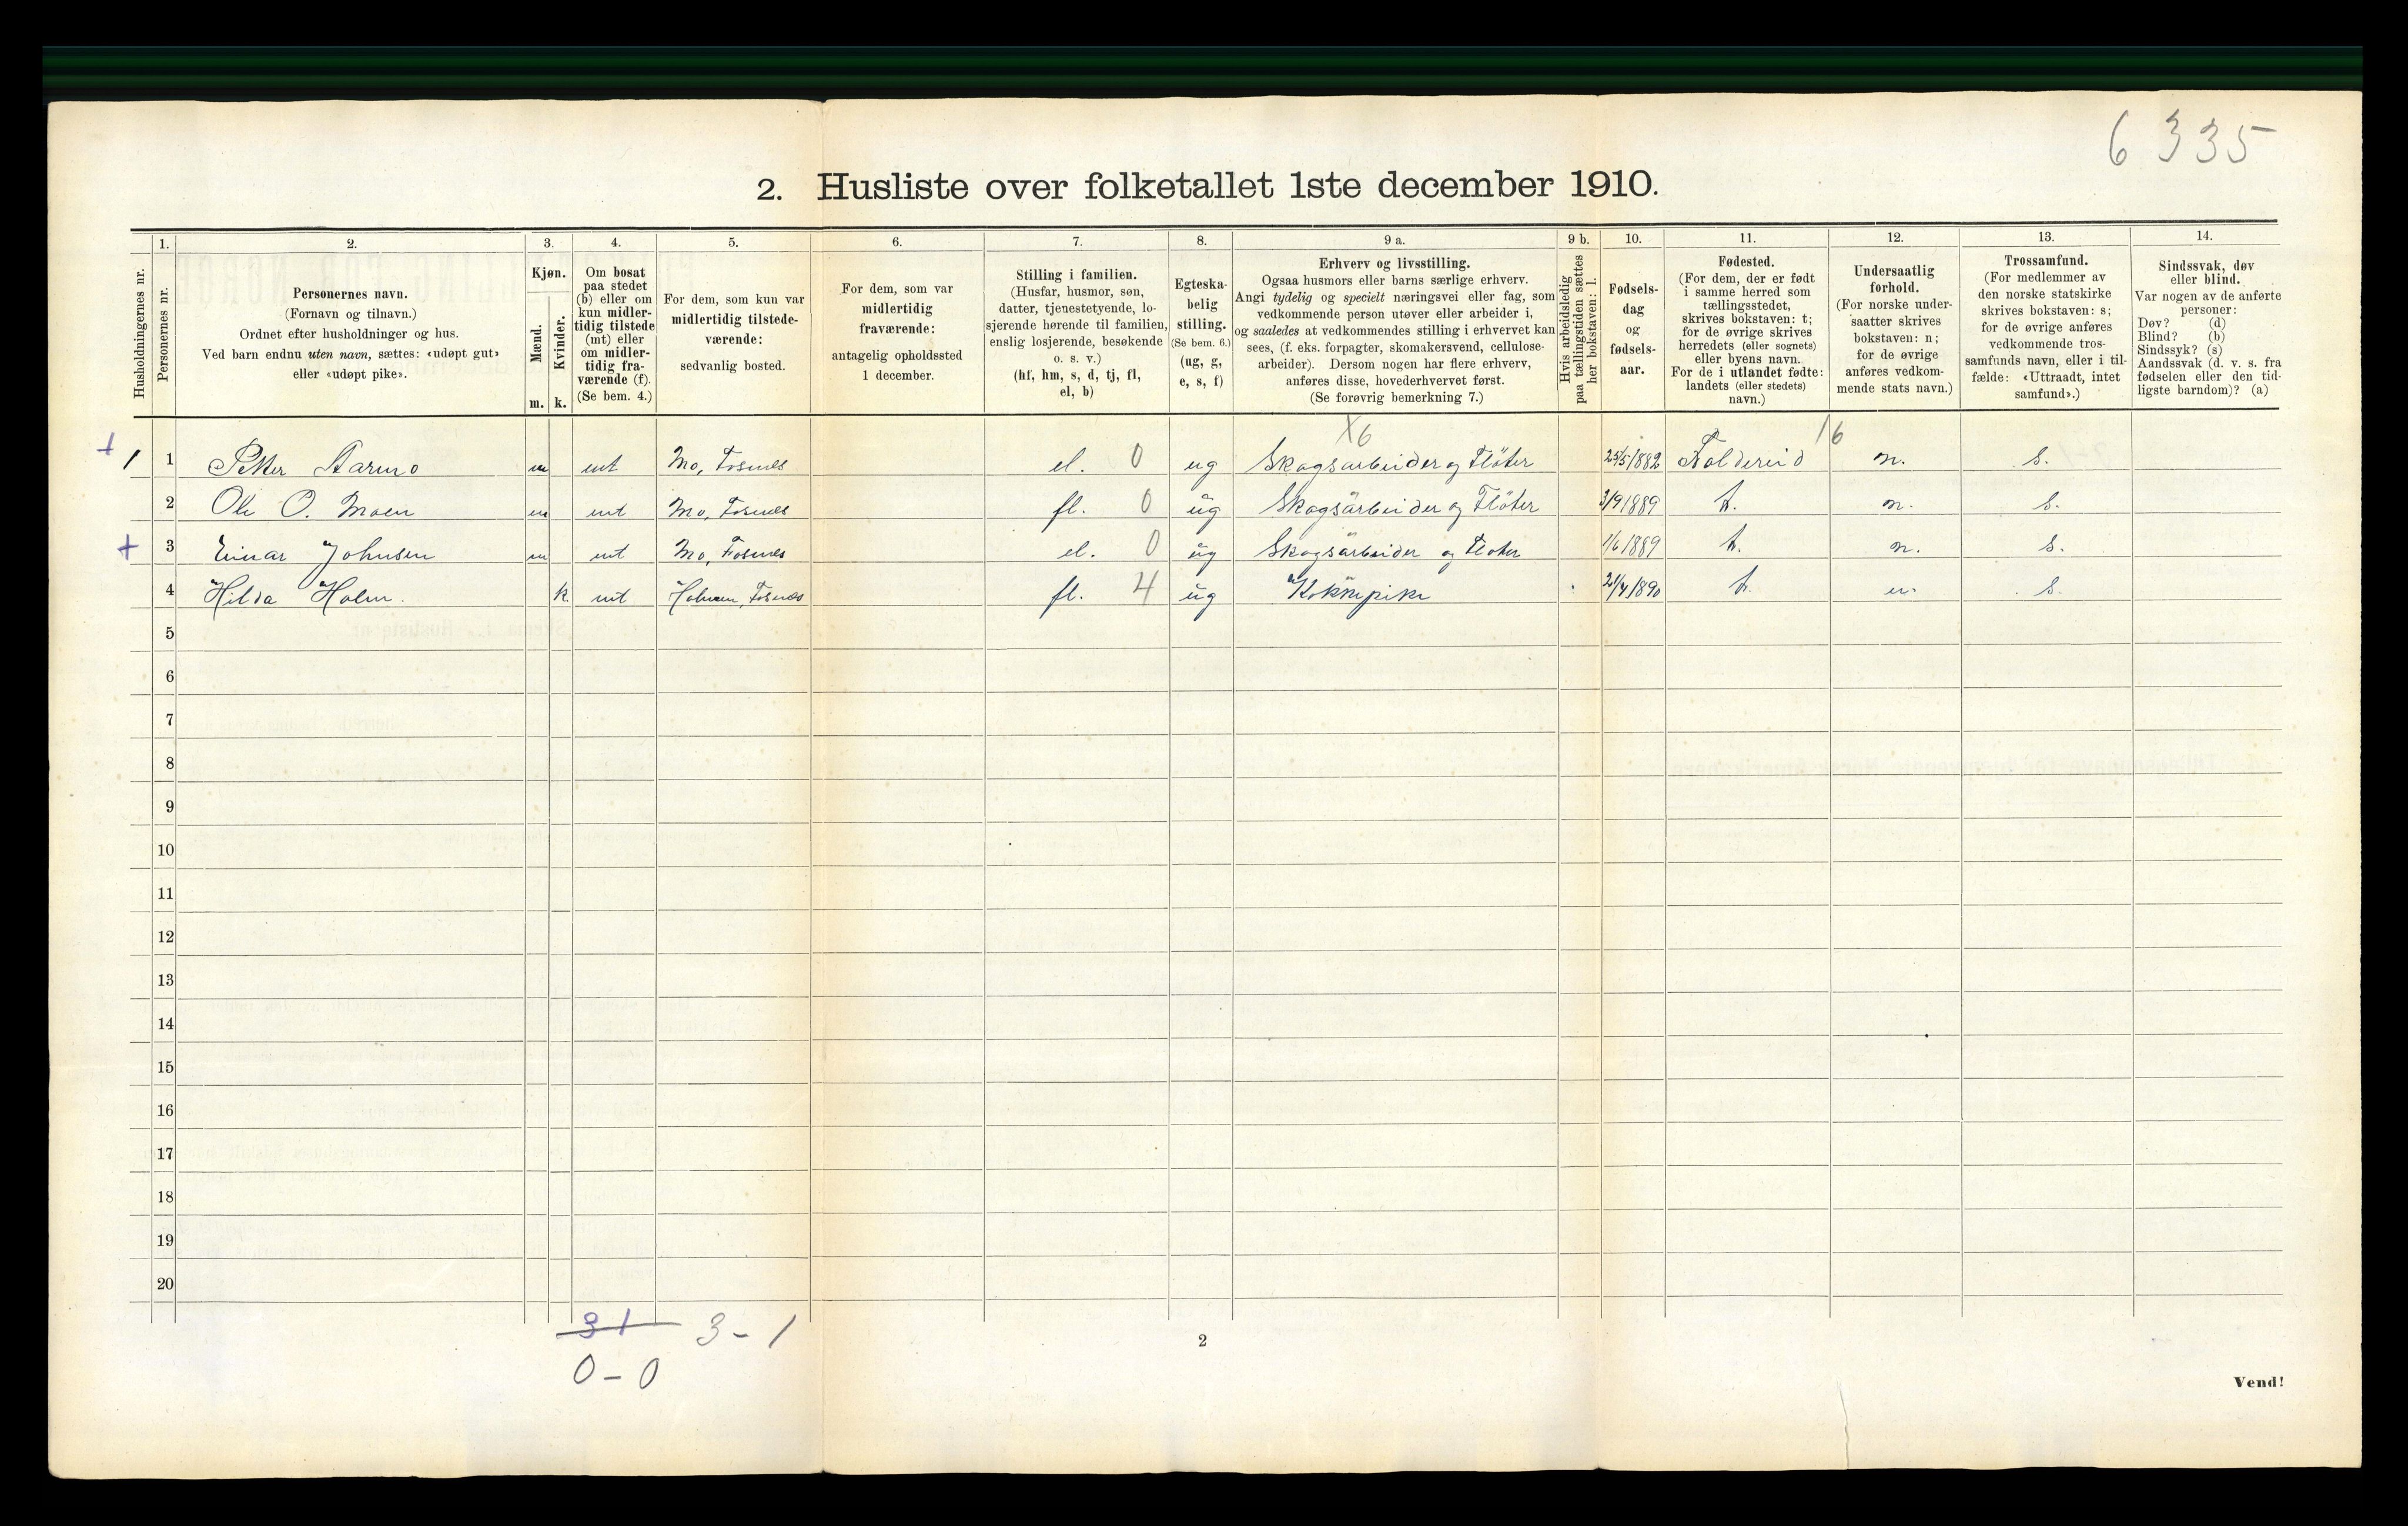 6 335
2. Husliste over folketallet 1ste december 1910.
Husholdningernes nr.
1.
Personernes nr.
2.
Personernes navn.
(Fornavn og tilnavn.)
Ordnet efter husholdninger og hus.
Ved barn endnu uten navn, sættes: «udøpt gut»
eller «udøpt pike».
3.
Kjøn.
Mænd.
Kvinder.
m. k.
4.
Om bosat
paa stedet
(b) eller om
kun midler-
tidig tilstede
(mt) eller
om midler-
tidig fra-
værende (f).
(Se bem. 4.)
5.
For dem, som kun var
midlertidig tilstede-
værende:
sedvanlig bosted.
6.
For dem, som var
midlertidig
fraværende:
antagelig opholdssted
1 december.
7.
Stilling i familien.
(Husfar, husmor, søn,
datter, tjenestetyende, lo-
sjerende hørende til familien,
enslig losjerende, besøkende
o. s. v.)
(hf, hm, s, d, tj, fl,
el, b)
8.
Egteska-
belig
stilling.
(Se bem. 6.)
(ug, g,
e, s, f)
9 a.
Erhverv og livsstilling.
Ogsaa husmors eller barns særlige erhverv.
Angi tydelig og specielt næringsvei eller fag, som
vedkommende person utøver eller arbeider i,
og saaledes at vedkommendes stilling i erhvervet kan
sees, (f. eks. forpagter, skomakersvend, cellulose-
arbeider). Dersom nogen har flere erhverv,
anføres disse, hovederhvervet først.
(Se forøvrig bemerkning 7.)
9 b.
Hvis arbeidsledig
paa tællingstiden sættes
her bokstaven: l.
10.
Fødsels-
dag
og
fødsels-
aar.
11.
Fødested.
(For dem, der er født
i samme herred som
tællingsstedet,
skrives bokstaven: t;
for de øvrige skrives
herredets (eller sognets)
eller byens navn.
For de i utlandet fødte:
landets (eller stedets)
navn.)
12.
Undersaatlig
forhold.
(For norske under-
saatter skrives
bokstaven: n;
for de øvrige
anføres vedkom-
mende stats navn.)
13.
Trossamfund.
(For medlemmer av
den norske statskirke
skrives bokstaven: s;
for de øvrige anføres
vedkommende tros-
samfunds navn, eller i til-
fælde: «Uttraadt, intet
samfund».)
14.
Sindssvak, døv
eller blind.
Var nogen av de anførte
personer:
Døv? (d)
Blind? (b)
Sindssyk? (s)
Aandssvak (d. v. s. fra
fødselen eller den tid-
ligste barndom)? (a)
X6 16
+ 1 1 Petter Aarmo m mt Mo, Fosnes el. 0 ug Skogsarbeider og Fløter 25/5 1882 Foldereid n. s.
2 Ole O. Moen m mt Mo, Fosnes fl. 0 ug Skogsarbeider og Fløter 3/9 1889 t. n. s.
+ 3 Einar Johnsen m mt Mo, Fosnes el. 0 ug Skogsarbeider og Fløter 1/6 1889 t. n. s.
4 Hilda Holm. k mt Holmen, Fosnes fl. 4 ug Kokkepike 21/4 1890 t. n. s.
5
6
7
8
9
10
11
12
13
14
15
16
17
18
19
20
31 3 - 1
0 - 0
2
Vend!